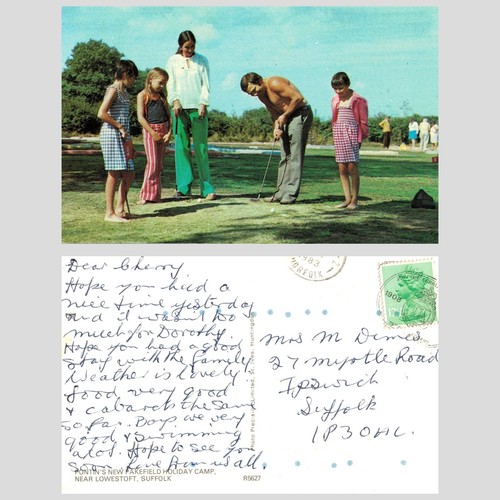 Dear Cherry.
Hope you had a
nice time yesterday
and it wasn't too
much for Dorothy.
Hope you had a good
stay with the family
Weather is lovely
food very good
& cabarets the same
so far. Boys are very
good & swimming
alot. Hope to see you
soon. Love from us all.
PONTIN'S NEW PAKEFIELD HOLIDAY CAMP,
NEAR LOWESTOFT, SUFFOLK
R5627
1983
NORFOLK
1983
Mrs M Dimes
27 Myrtle Road
Ipswich
Suffolk
IP3 0HL.